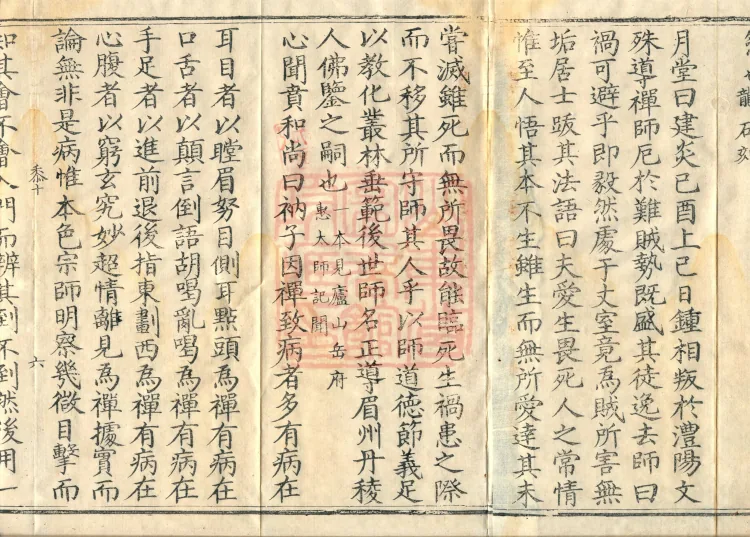 龍石刻
月堂曰建炎己酉上巳日鍾相叛於澧陽文
殊導禪師厄於難賊勢既盛其徒逸去師曰
禍可避乎即毅然處于丈室竟為賊所害無
垢居士跋其法語曰夫愛生畏死人之常情
惟至人悟其本不生雖生而無所愛達其未
嘗滅雖死而無所畏故能臨死生禍患之際
而不移其所守師其人乎以師道德節義足
以教化叢林垂範後世師名正導眉州丹稜
人佛鑒之嗣也一本見廬山岳府
惠大師記聞
心聞賁和尚曰衲子因禪致病者多有病在
耳目者以瞠眉努目側耳點頭為禪有病在
口舌者以顛言倒語胡喝亂喝為禪有病在
手足者以進前退後指東劃西為禪有病在
心腹者以窮玄究妙超情離見為禪據實而
論無非是病惟本色宗師明察幾微目擊而
知其會不會入門而辨其到不到然後用一
六